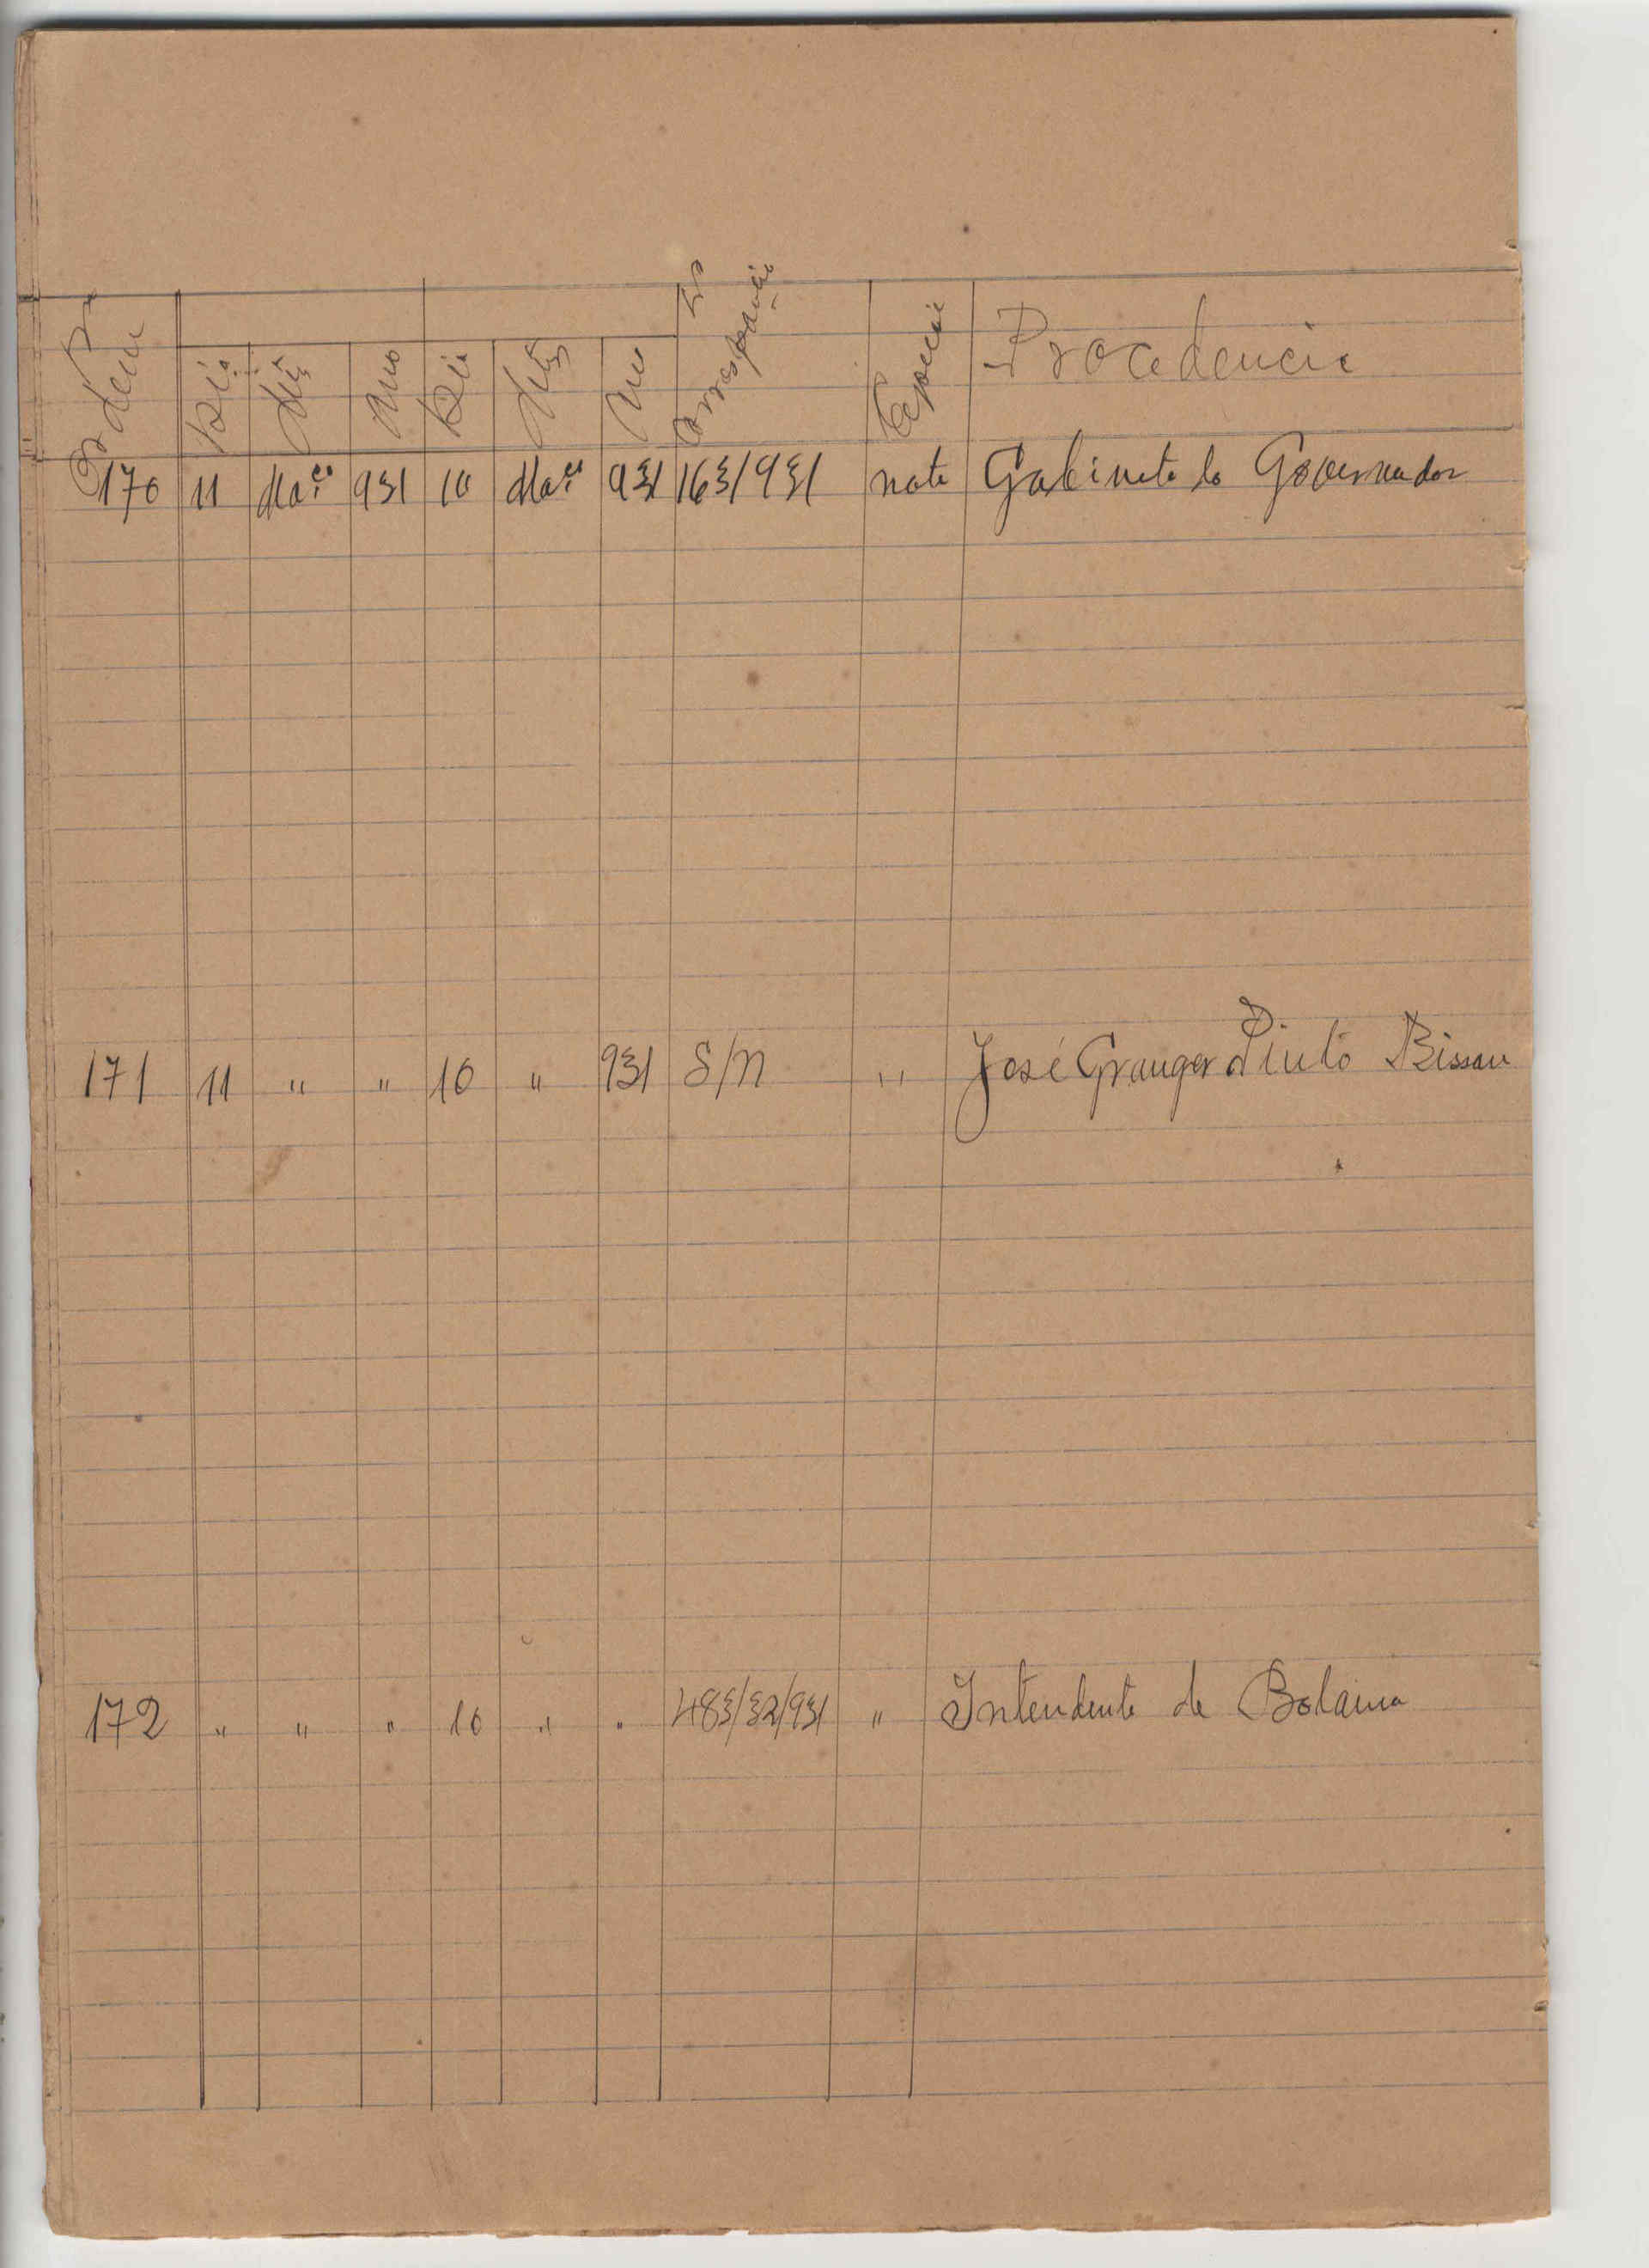 Nº Ordem Dia Mês Ano Dia Mês Ano Nº Correspondência Especie Procedencia
170 11 Mar.ço 931 10 Mar.ço 931 163/931 nota Gabinete do Governador
171 11 " " 10 " 931 S/N " José Granger Pinto Bissau
172 " " " 10 " " 483/32/931 " Intendente de Bolama